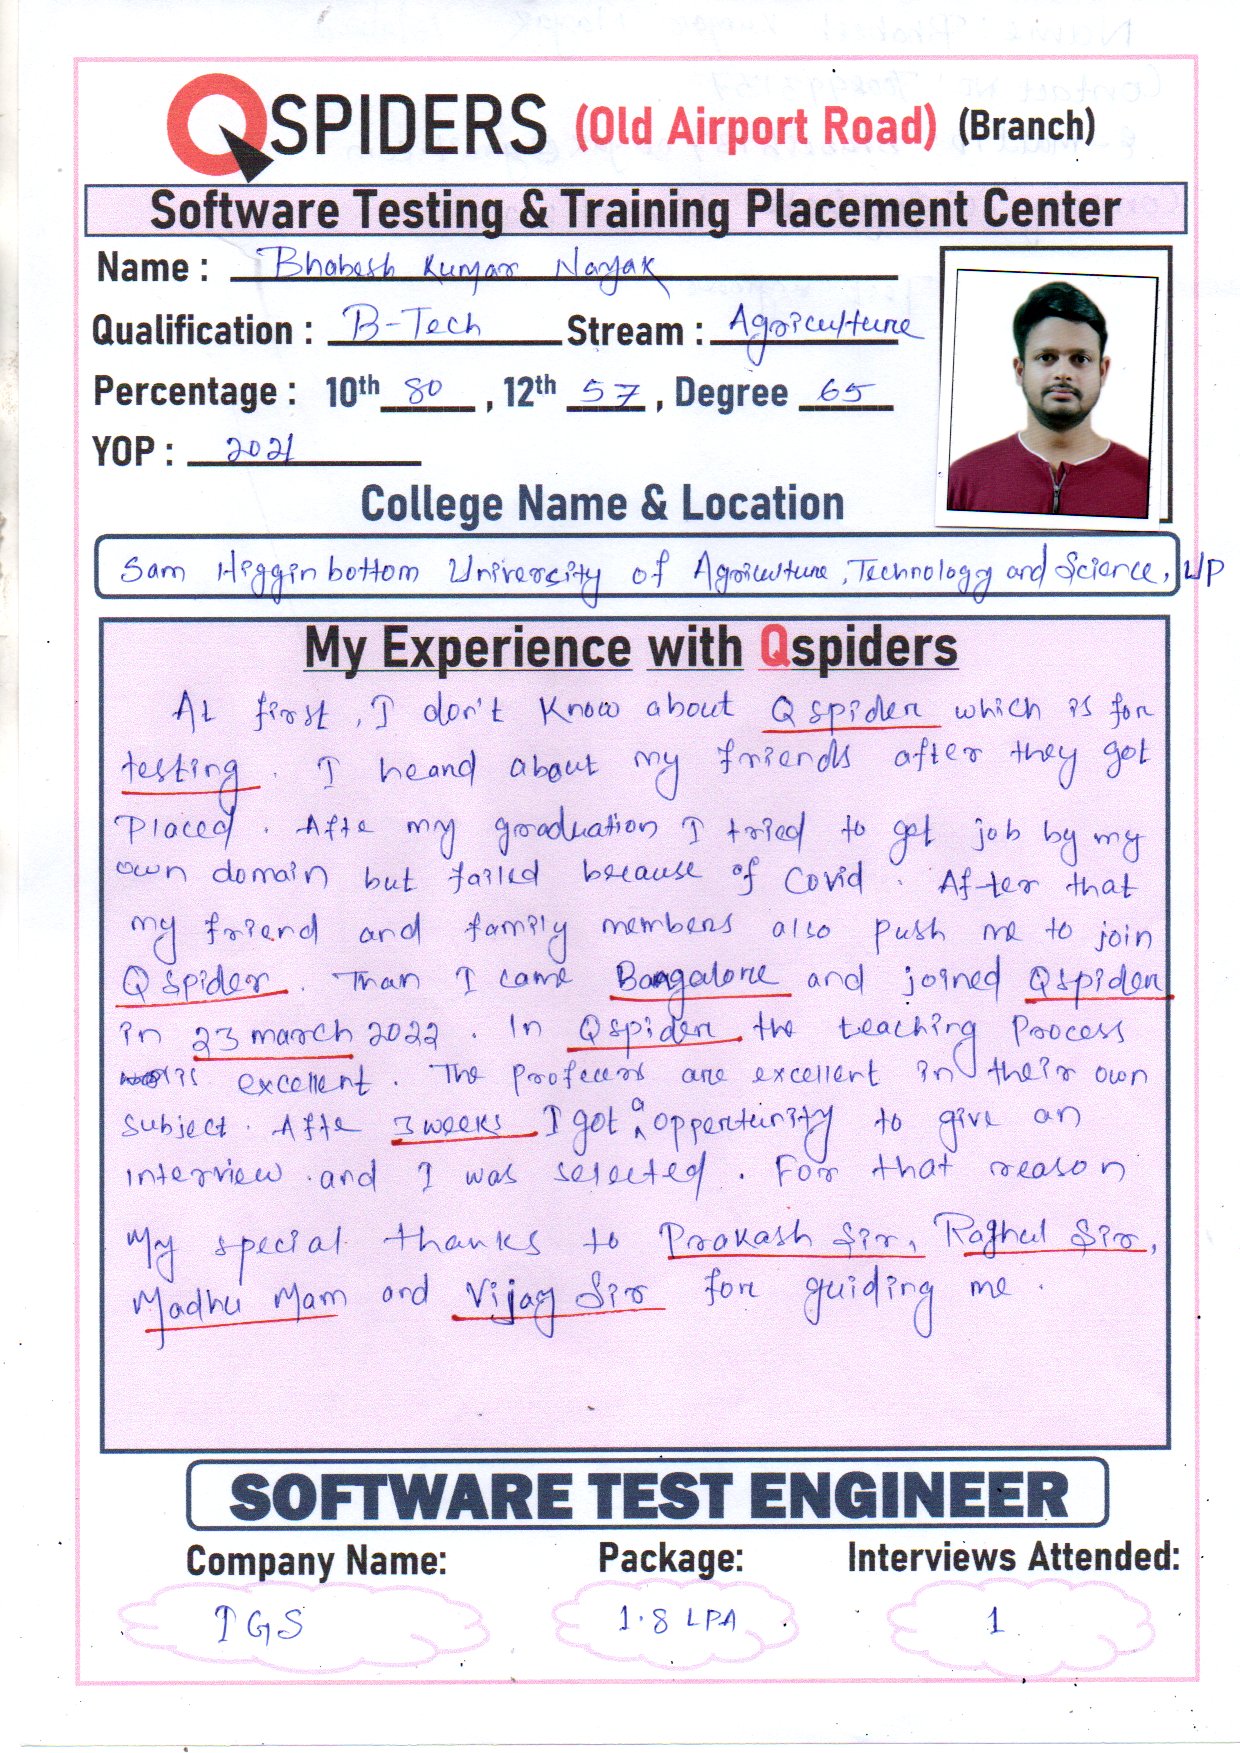 QSPIDERS (Old Airport Road) (Branch)
Software Testing & Training Placement Center
Name : Bhabesh Kumar Nayak
Qualification : B-Tech Stream : Agriculture
Percentage : 10th 80 , 12th 57 , Degree 65
YOP : 2021
College Name & Location
Sam Higginbottom University of Agriculture, Technology and Science, UP
My Experience with Qspiders
At first, I don't know about Qspider which is for
testing. I heard about my friends after they got
placed. Afte my graduation I tried to get job by my
own domain but failed because of Covid. After that
my friend and family members also push me to join
Qspider. Than I came Bangalore and joined Qspider
in 23 march 2022. In Qspider the teaching process
is excellent. The profecers are excellent in their own
subject. Afte 3 weeks I got a oppertunity to give an
interview and I was selected. For that reason
My special thanks to Prakash Sir, Sir,
Madhu Mam and Vijay Sir for guiding me.
SOFTWARE TEST ENGINEER
Company Name: Package: Interviews Attended:
TGS 1.8 LPA 1